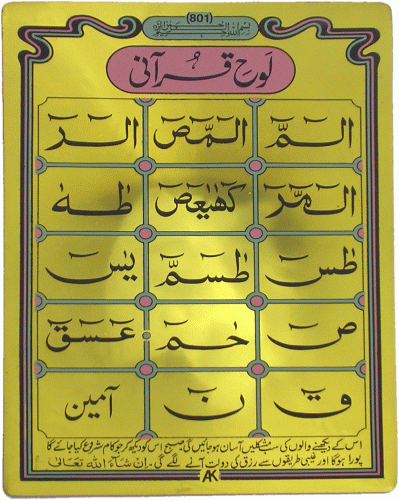 (801)
بسم اللہ الرحمن الرحیم
لوح قرآنی
الٓمّٓ الٓمّٓصٓ الٓرٰ
الٓمّٓرٰ كٓهٰيٰعٓصٓ طٰهٰ
طٰسٓ طٰسٓمّٓ يٰسٓ
صٓ حٰمٓ عٓسٓقٓ
قٓ نٓ آمین
اس کے دیکھنے والوں کی سب مشکلیں آسان ہو جائیں گی صبح اس کو دیکھ کر جو کام شروع کیا جائے گا
پورا ہوگا اور غیبی طریقوں سے رزق کی دولت آنے لگے گی۔ ان شاء اللہ تعالیٰ
AK